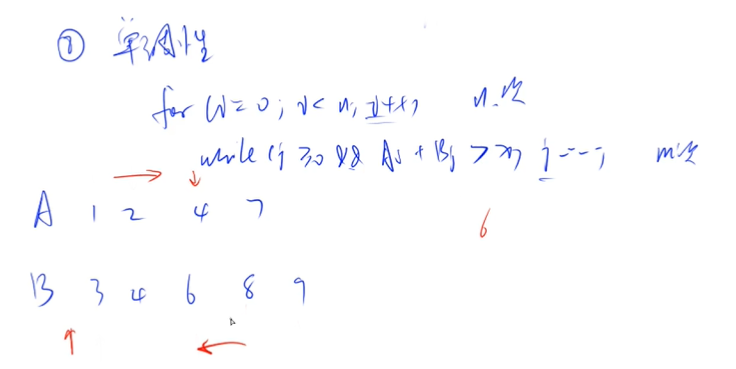 ① 单调性
for (i = 0; i < n; i++) n次
while (j ≥ 0 && Ai + Bj > x) j--; m次
A 1 2 4 7
6
B 3 4 6 8 9